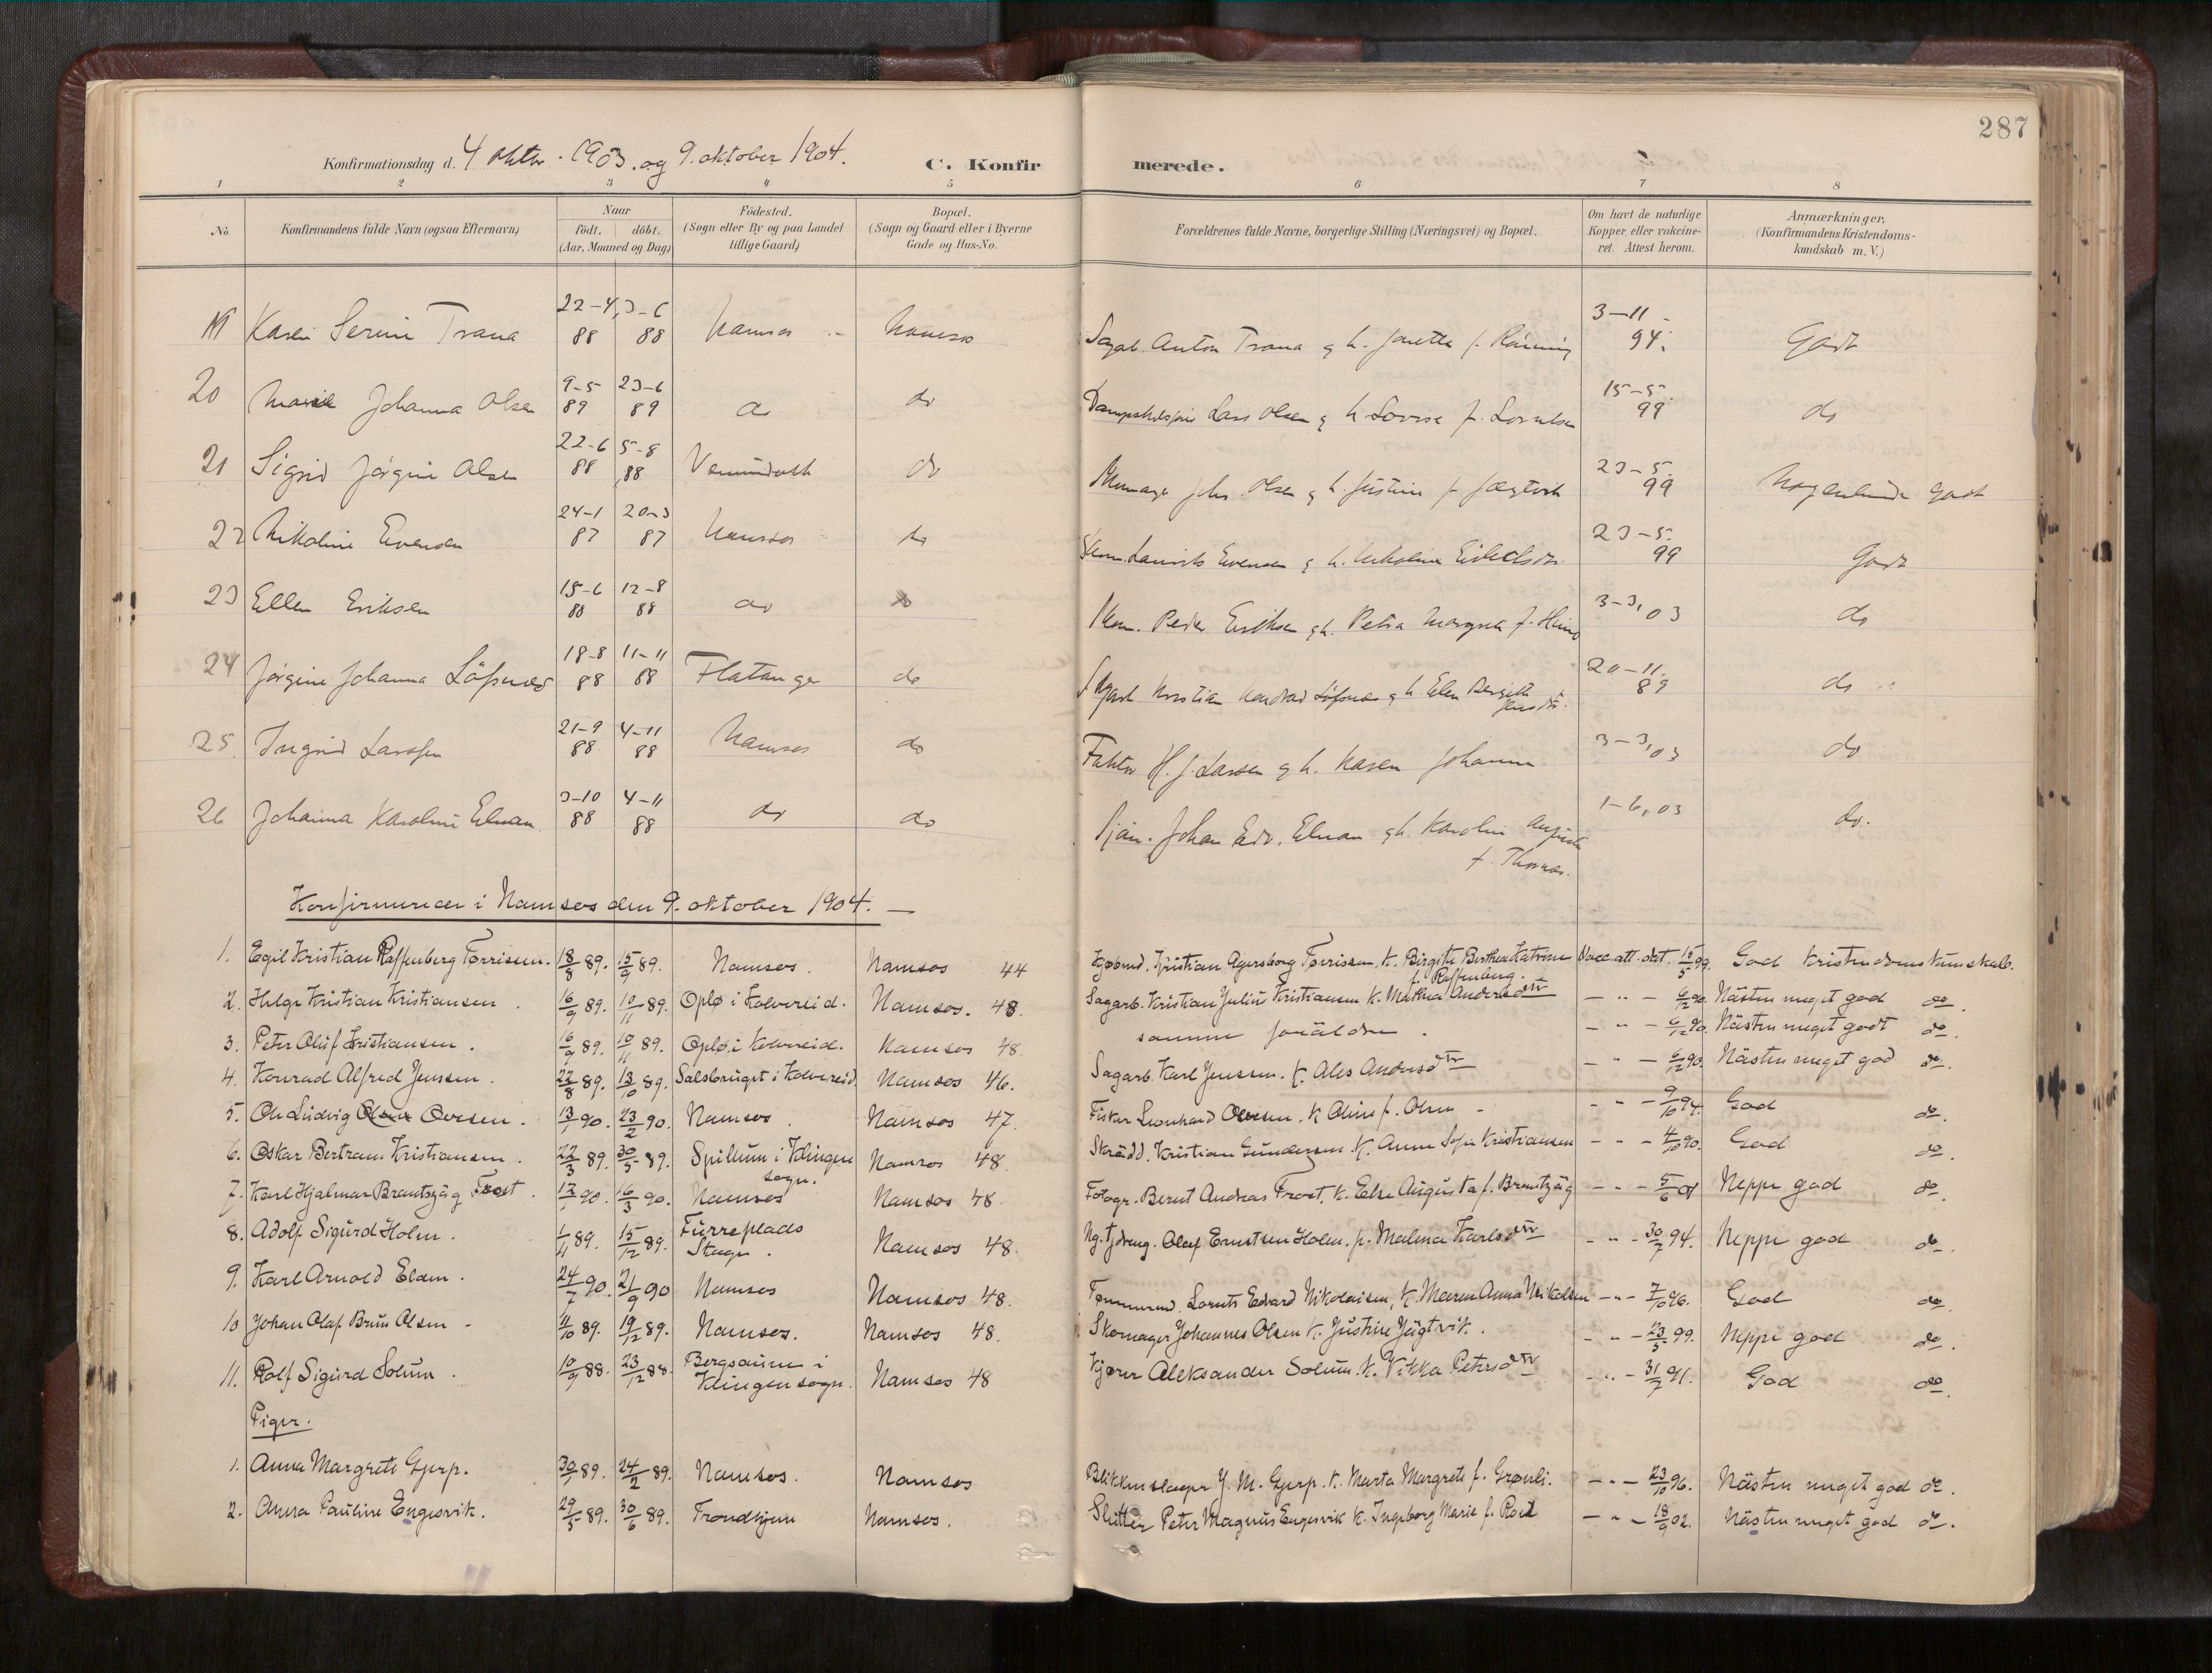 287
Konfirmationsdag d. 4 oktbr. 1903. og 9. oktober 1904. C. Konfir merede.
1 2 3 4 5 6 7 8
No. Konfirmandens fulde Navn (ogsaa Efternavn) Naar födt. döbt. (Aar, Maaned og Dag) Födested. (Sogn eller By og paa Landet tillige Gaard) Bopæl. (Sogn og Gaard eller i Byerne Gade og Hus-No. Forældrenes fulde Navne, borgerlige Stilling (Næringsvei) og Bopæl. Om havt de naturlige Kopper eller vakcineret. Attest herom. Anmærkninger. (Konfirmandens Kristendomskundskab m. V.)
19 Karen Serine Trana 22-4 88 3-6 88 Namsos Namsos Sagarb. Anton Trana g h. Janetta f. 3-11 94. Godt
20 Marie Johanna Olsen 9-5 89 23-6 89 do do Lars Olsen g h Lovise f. 15-5. 99 do
21 Sigrid Jörgine Olsen 22-6 88 5-8 88 Vemundvik do Skomager Johs. Olsen g h. Justine f. Jægtvik 23-5. 99 Nogenlunde godt
22 Nikoline Evensen 24-1 87 20-3 87 Namsos do Skom. Laurits Evensen g h. Nikoline 23-5. 99 Godt
23 Ellen Eriksen 15-6 88 12-8 88 do do Skom. Peder Eriksen g h. Petra Margrete f. 3-3, 03 do
24 Jörgine Johanna Löfsnæs 18-8 88 11-11 88 Flatanger do Kristian Löfsnæs g h. Elen Bergitte 20-11. 89 do
25 Ingrid Larssen 21-9 88 4-11 88 Namsos do Faktor H. J. Larsen g h. Karen Johanna 3-3, 03 do
26 Johanna Karoline Elnan 3-10 88 4-11 88 do do Sjöm. Johan Edv. Elnan g h. Karoline Augusta f. 1-6, 03 do.
Konfirmerede i Namsos den 9. oktober 1904. —
1. Egil Kristian Raffenberg Tørrissen. 18/8 89. 15/9 89. Namsos. Namsos 44 Kjøbmd. Kristian Agersborg Tørrissen. K. Birgitte Berthea Katrine f. Raffenberg. Vacc. att. dat. 15/5 99. God kristendomskundskab.
2. Helge Kristian Kristiansen. 16/9 89. 10/11 89. Oplø i Kolvereid. Namsos. 48. Sagarb. Kristian Julius Kristiansen K. Mathea Andersdtr — " — 6/12 90. Nästen meget god do.
3. Peter Oluf Kristiansen. 16/9 89. 10/11 89. Oplø i Kolvereid. Namsos 48. samme foräldre. — " — 6/12 90. Nästen meget godt do.
4. Konrad Alfred Jenssen. 22/8 89. 13/10 89. Salsbruget i Kolvereid. Namsos 46. Sagarb. Karl Jenssen. K. Ales Andersdtr — " — 6/12 90. Nästen meget god do.
5. Ole Ludvig Ovesen. 13/1 90. 23/2 90. Namsos. Namsos 47. Fisker Leonhard Ovesen. K Oline f. Olsen — — " — 9/10 94. God do.
6. Oskar Bertram Kristiansen. 22/3 89. 30/5 89. Spillum i Klingen sogn. Namsos 48. Skrädd. Kristian Gundersen. K. Anne Sofie Kristiansen — " — 4/10 90. God do.
7. Karl Hjalmar Brantzæg Frost. 17/1 90. 16/3 90. Namsos Namsos 48. Fotogr. Bernt Andreas Frost. K. Else Augusta f. Brantzæg — " — 5/6 01 Neppe god do.
8. Adolf Sigurd Holm. 1/11 89. 15/12 89. Furreplads Stagn. Namsos 48. Ug. tjdreng. Olaf Erntsen Holm. p. Malena Karlsdtr — " — 30/7 94. Neppe god do.
9. Karl Arnold Elden. 24/7 90. 21/9 90 Namsos Namsos 48. Tømmermd. Lornts Edvard Nikolaisen, K. Maren Anna Nikolsen — " — 7/10 96. God do.
10 Johan Olaf Brun Olsen — 11/10 89. 19/12 89. Namsos. Namsos 48. Skomager Johannes Olsen K. Justine Jägtvik. — " — 23/5 99. Neppe god do.
11. Rolf Sigurd Solum. 10/9 88. 23/12 88. Bergsaunn i Klingen sogn. Namsos 48 Kjører Aleksander Solum. K. Vikka Petersdtr — " — 31/7 91. God do.
Piger.
1. Anna Margrete Gjerp. 30/1 89. 24/2 89. Namsos. Namsos Blikkenslager J. M. Gjerp. K. Marta Margrete f. Grønli. — " — 23/10 96. Nästen meget god do.
2. Anna Pauline Engesvik. 29/5 89. 30/6 89. Trondhjem Namsos. Peter Magnus Engesvik K. Ingeborg Marie f. — " — 18/9 02. Nästen meget god do.